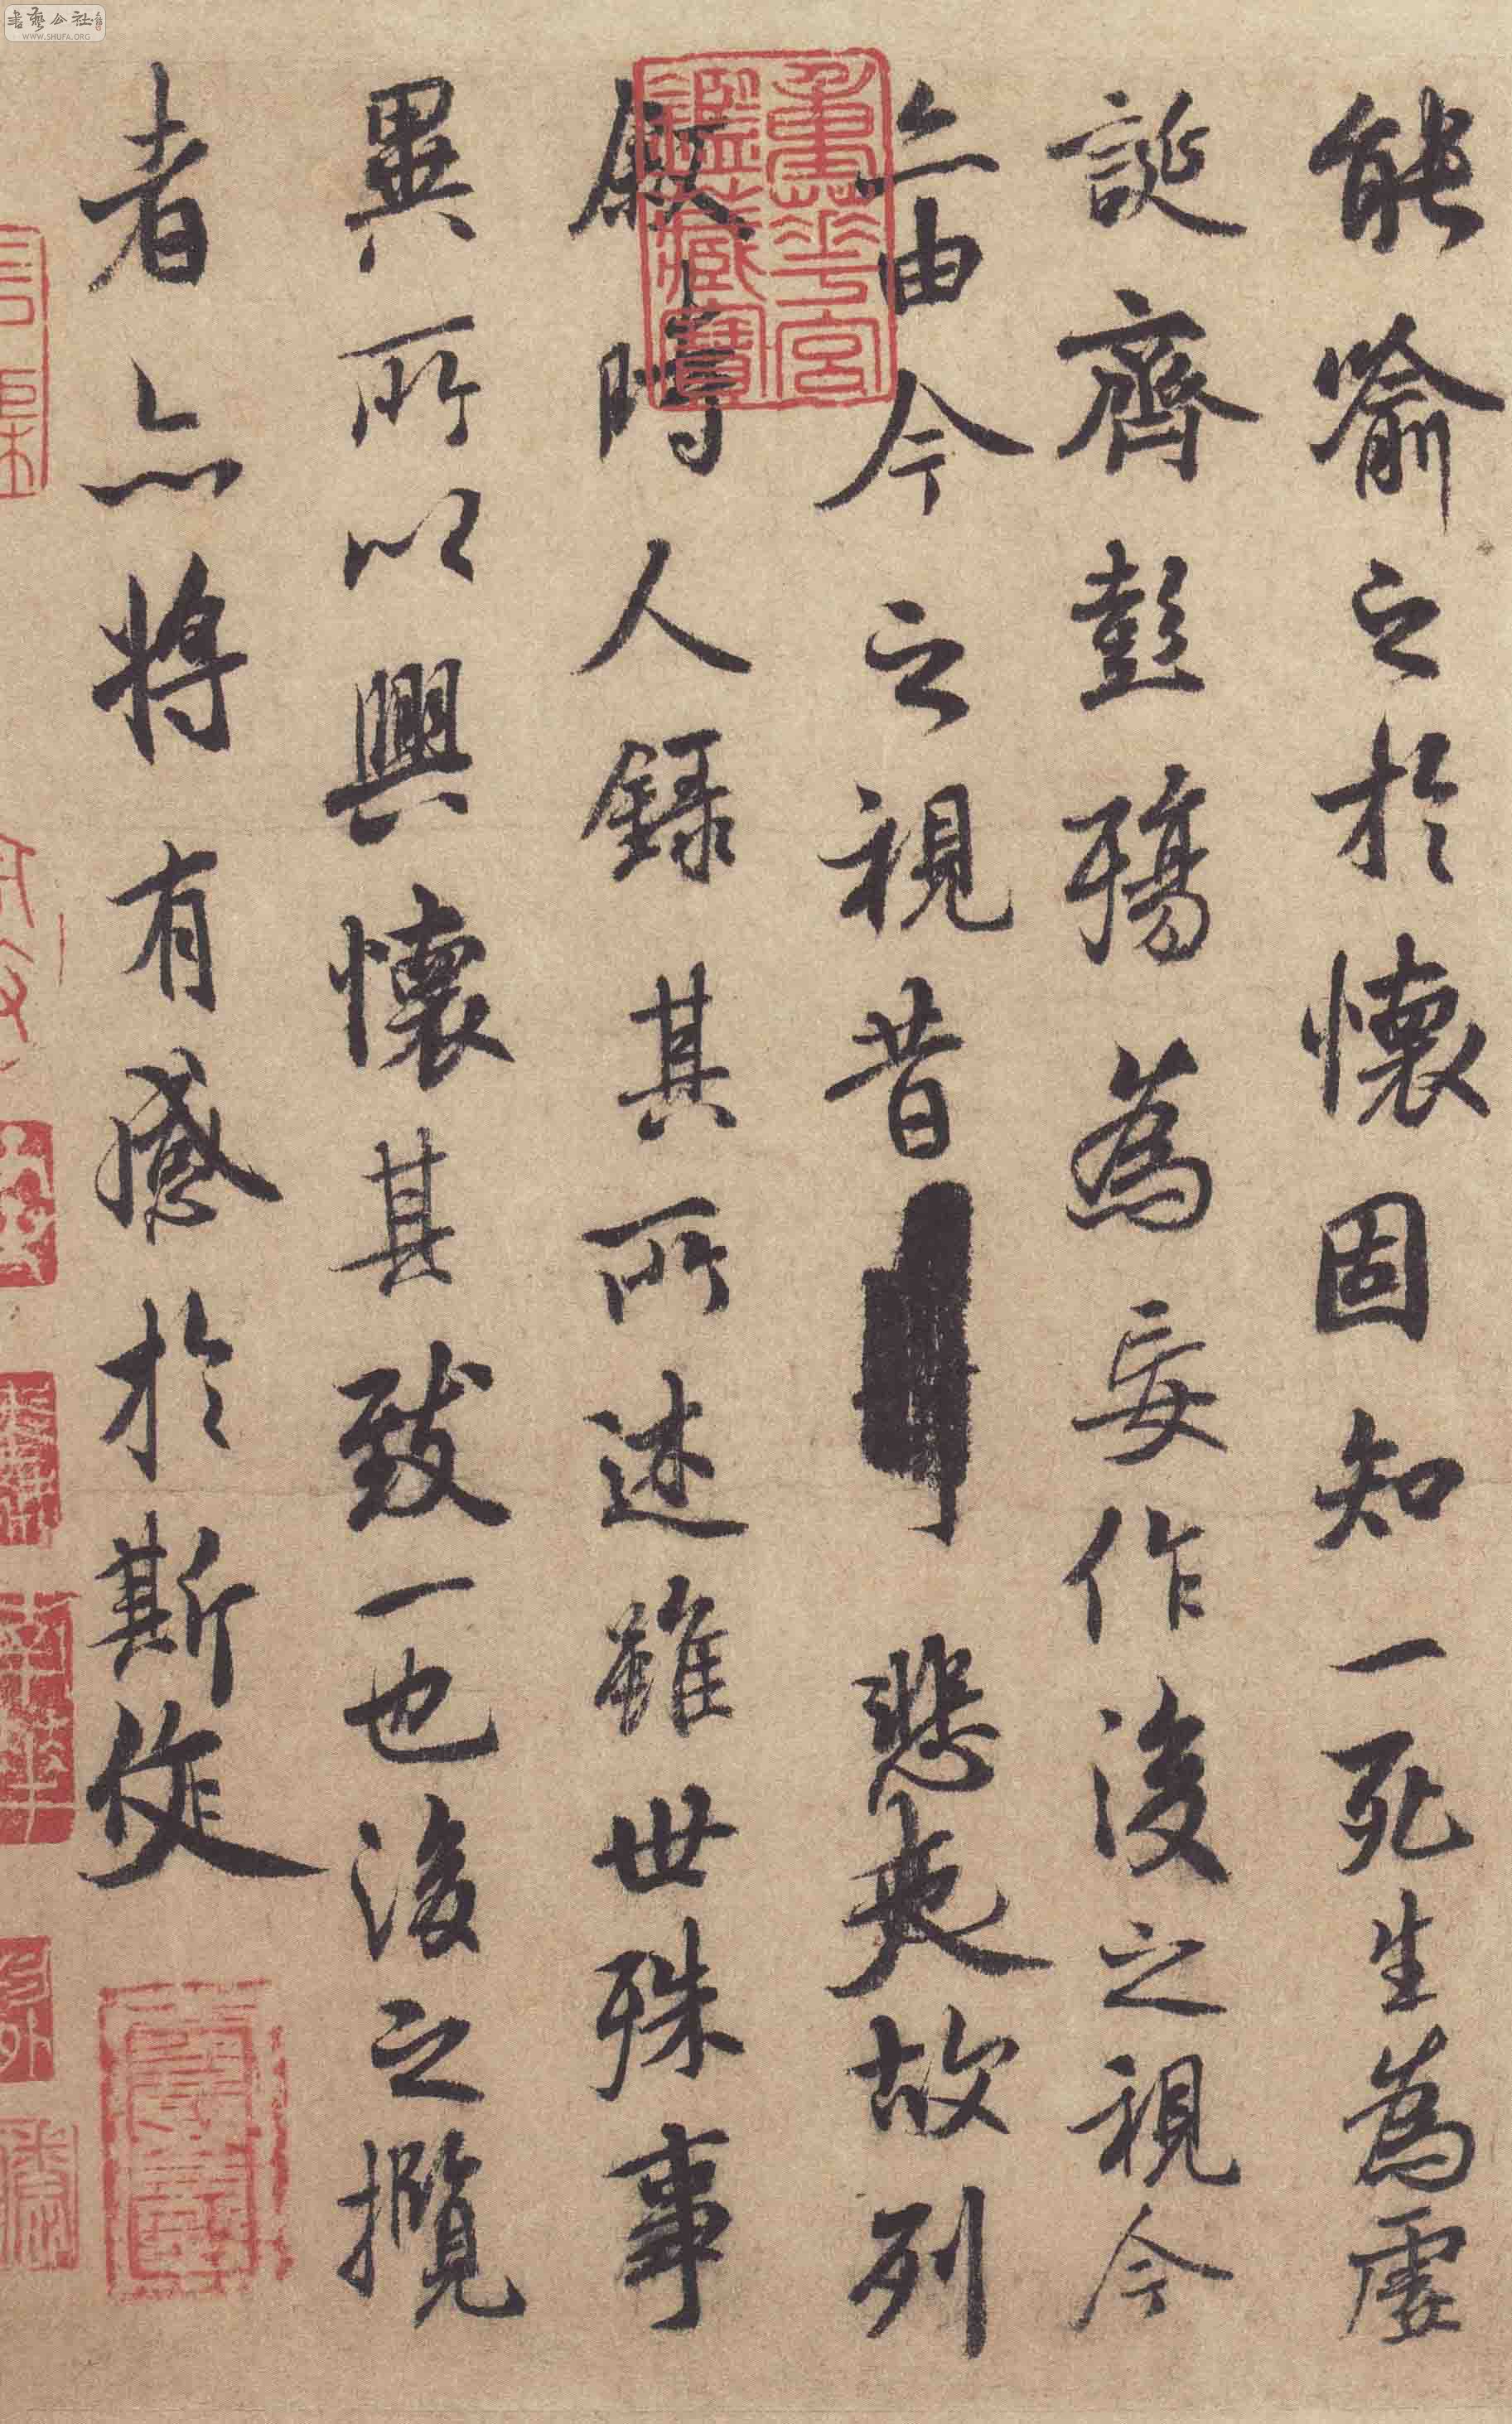 能喻之於懷固知一死生為虛
誕齊彭殤為妄作後之視今
亦由今之視昔 悲夫故列
敘時人錄其所述雖世殊事
異所以興懷其致一也後之攬
者亦將有感於斯文
重華宮
鑑藏寶
書藝公社
WWW.SHUFA.ORG